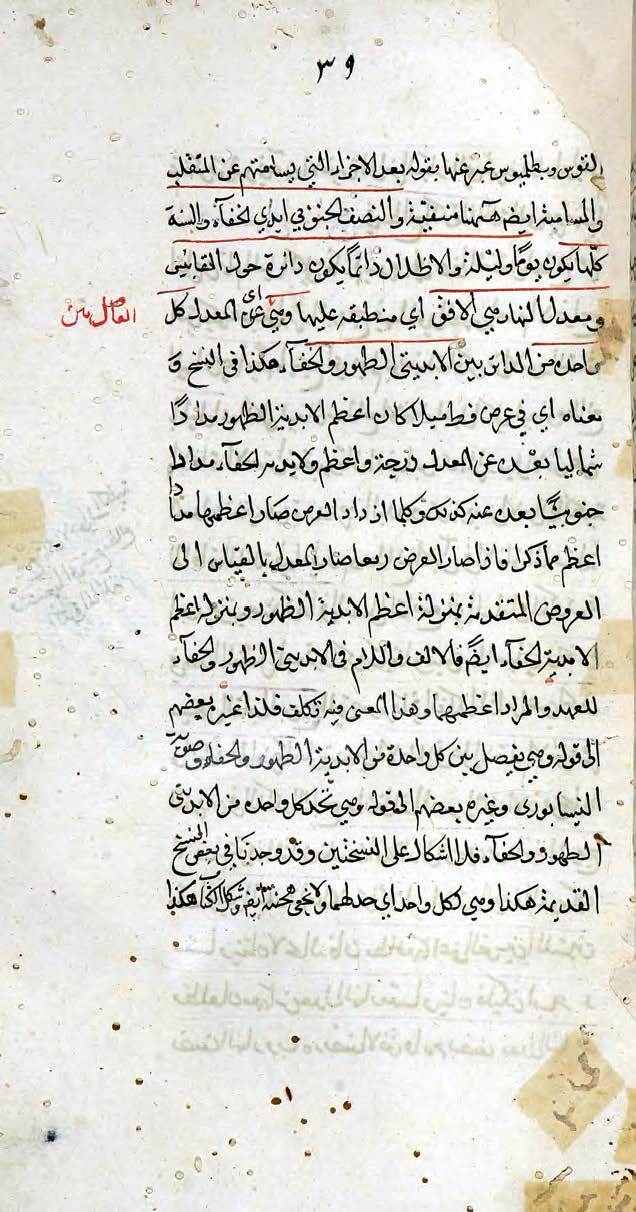 ٣٩
القوس وبطلميوس عبر عنها بقوله بعد الاجزاء التي يسامتهم عن المنقلب
والمسامتة ايضا ههنا منفية والنصف الجنوبي ابدي الخفآء والسنة
كلها يكون يوما وليلة والاظلال دائما يكون دائرة حول المقاييس
ومعدل النهار هي الافق اي منطبقه عليها وهي اي المعدل كل
الفاصل بين
واحده من الدائر بين الابديتي الظهور والخفآء هكذا في النسخ و
معناه اي في عرض فرط ميلا كان اعظم الابدية الظهور مدارا
شماليا بعده عن المعدل درجة واعظم الابدية الخفآء مدارا
جنوبيا بعده عنه كذلك وكلما ازداد العرض صار اعظمها مدارا
اعظم مما ذكرا فاذا صار العرض ربعا صار المعدل بالقياس الى
العروض المتقدمة بمنزلة اعظم الابدية الظهور وبمنزلة اعظم
الابدية الخفآء ايضا فالالف واللام في الابديتي الظهور والخفآء
للعهد والمراد اعظمهما وهذا المعنى فيه تكلف فلذا غيره بعضهم
الى قوله وهي يفصل بين كل واحدة من الابدية الظهور والخفآء وصوبه
النيسابوري وغيره بعضهم الى قوله وهي تحد كل واحده من الابديتي
الظهور والخفآء فلا اشكال على النسختين وقد وجدنا في بعض النسخ
القديمة هكذا وهي لكل واحد اي حد لهما ولا يخفى ايضا هكذا